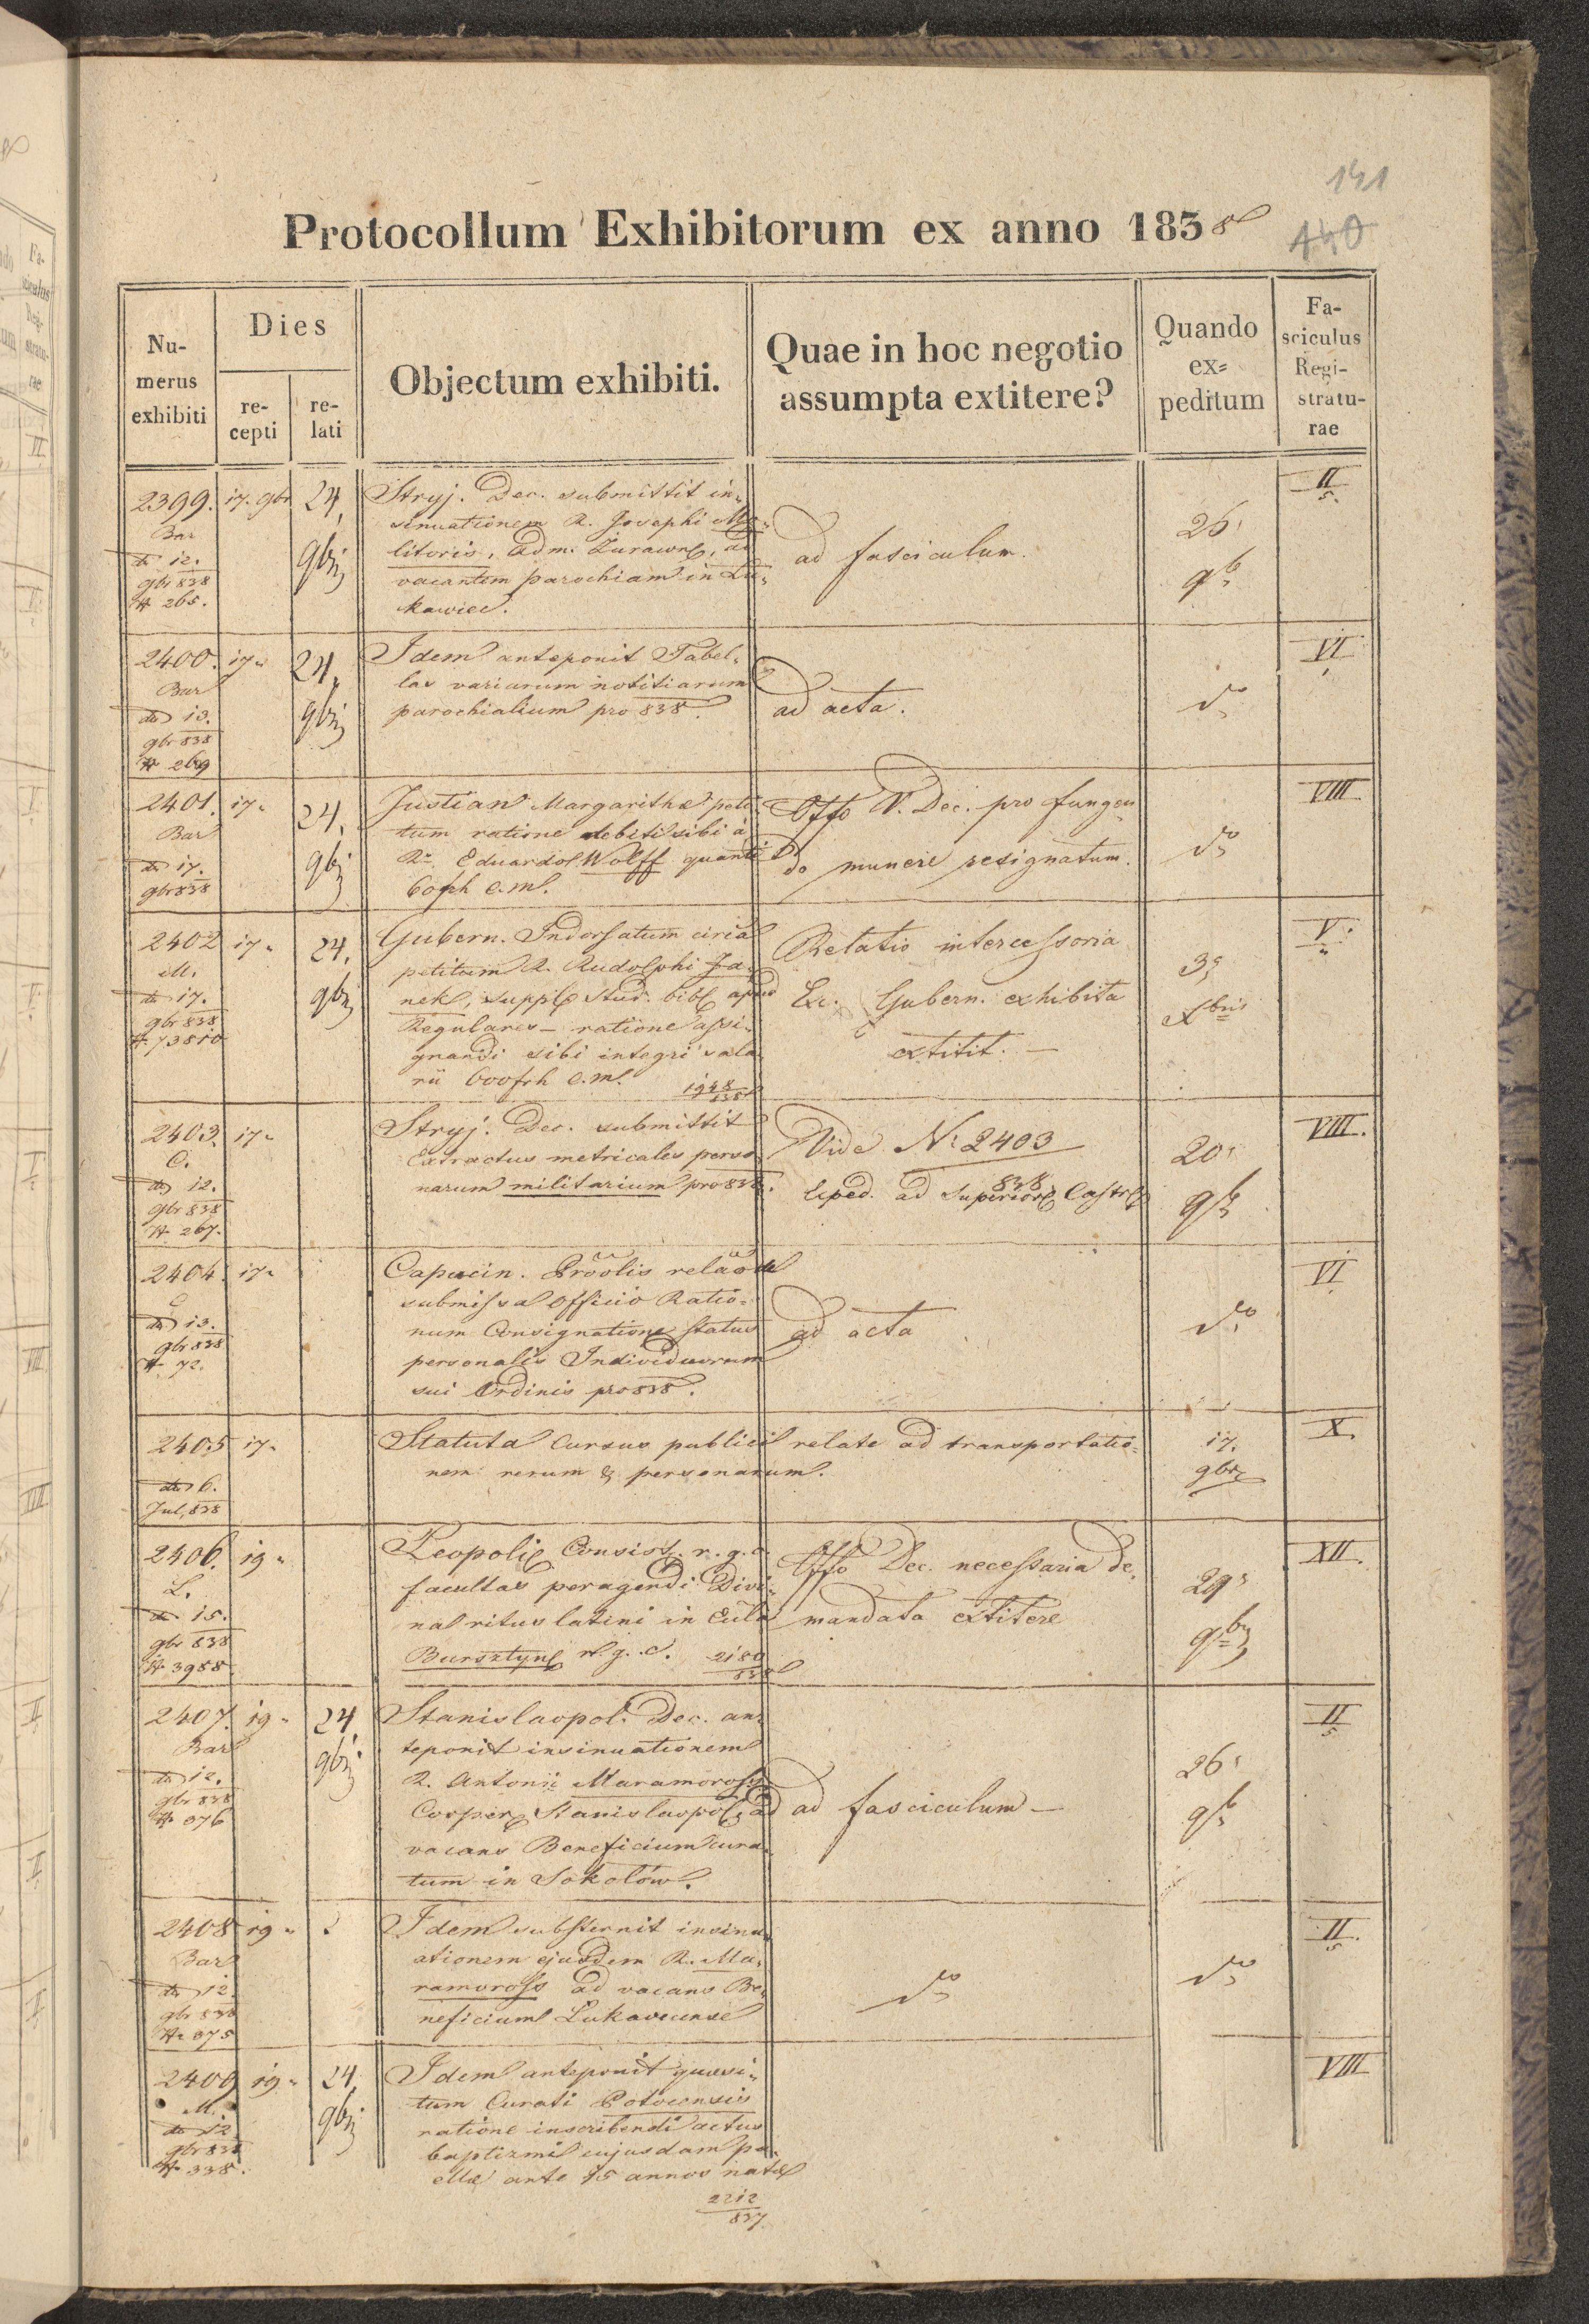 141
140
Protocollum Exhibitorum ex anno 1838
Numerus exhibiti
Dies
recepti
relati
Objectum exhibiti.
Quae in hoc negotio assumpta extitere?
Quando ex=peditum
Fasciculus Registraturae
2399. 17. 9br 24.
Bar
dto 12.
9br 838
N 265.
9bri
Stryj. Dec. submittit in-
sinuationem R. Josephi Mo-
litoris, Adm. Żurawn, ad
vacantem parochiam in Lu-
kawiec.
ad fasciculum.
26
9b
II
5.
2400. 17 24.
Bar
dto 13.
9br 838
N 269
9bri
Idem anteponit Tabel-
las variarum notitiarum
parochialium pro 838.
ad acta.
do
VI
2401. 17 24.
Bar
dto 17.
9br 838
9bri
Justian Margaritha peti-
tum ratione debiti sibi à
Ro Eduardo Wolff quanti
60 frh c.m.
Offo V. Dec. pro fungen-
do munere resignatum.
do
VIII
2402 17 24.
M.
dto 17.
9br 838
N. 73810
9bri
Gubern. Indorsatum circa
petitum R. Rudolphi Ja-
nek, suppl stud. bibl apud
Regulares – ratione assi-
gnandi sibi integri sala-
rii 600 frh c.m. 1948
838
Relatio intercessoria
Ex. Gubern. exhibita
extitit. –
3
Xbris
V.
2403. 17
C.
dto 12.
9br 838
N 267.
Stryj. Dec. submittit
Extractus metricales perso-
narum militarium pro 838.
Vide N: 2403
838
Exped. ad Superior Castr
20
9b
VIII.
2404. 17
C
dto 13.
9br 838
N. 72.
Capucin. Proolis relaõ de
submissa Officio Ratio-
num Consignatione status
personalis Individuorum
sui Ordinis pro 838.
ad acta
do
VI
2405 17
dto 6.
Jul, 838
Statuta Cursus publici relate ad transportatio-
nem rerum & personarum.
17.
9br
X.
2406. 19
L.
dto 15.
9br 838
N 3988
Leopoli Consist. r. g. c.
facultas peragendi Divi-
na ritus latini in Eccla
Bursztyn r. g. c. 2180
838
Offo Dec. necessaria de-
mandata extitere
29
9b
XII.
2407. 19 24
Bar
dto 12.
9br 838
N 376
9bri
Stanislaopol. Dec. an-
teponit insinuationem
R. Antonii Maramorosz
Cooper Stanislaopol, ad
vacans Beneficium cura-
tum in Sokołów.
ad fasciculum –
26
9b
II
5
2408 19
Bar
dto 12
9br 838
N 375
Idem substernit insinu-
ationem ejusdem R. Ma-
ramorosz ad vacans Be-
neficium Lukaviecense
do
do
II
5
2409 19 24.
M.
dto 12
9br 838
N 338.
9bri
Idem anteponit quaesi-
tum Curati Potocensis
ratione inscribendi actus
baptizmi cujusdam pu-
ellae ante 15 annos natae
2212
837
VIII